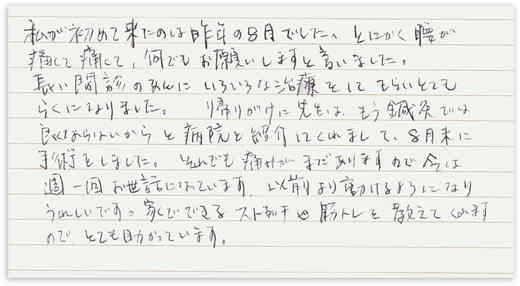 私が初めて来たのは昨年の8月でした。とにかく腰が
痛くて痛くて、何でもお願いしますと言いました。
長い問診のあとにいろいろな治療をしてもらいとても
らくになりました。帰りがけに先生は、もう鍼灸では
良くならないからと病院を紹介してくれまして、8月末に
手術をしました。それでも痛みがまだありますので今は
週一回お世話になっています。以前より動けるようになり
うれしいです。家でできるストレッチや筋トレを教えてくれます
ので、とても助かっています。